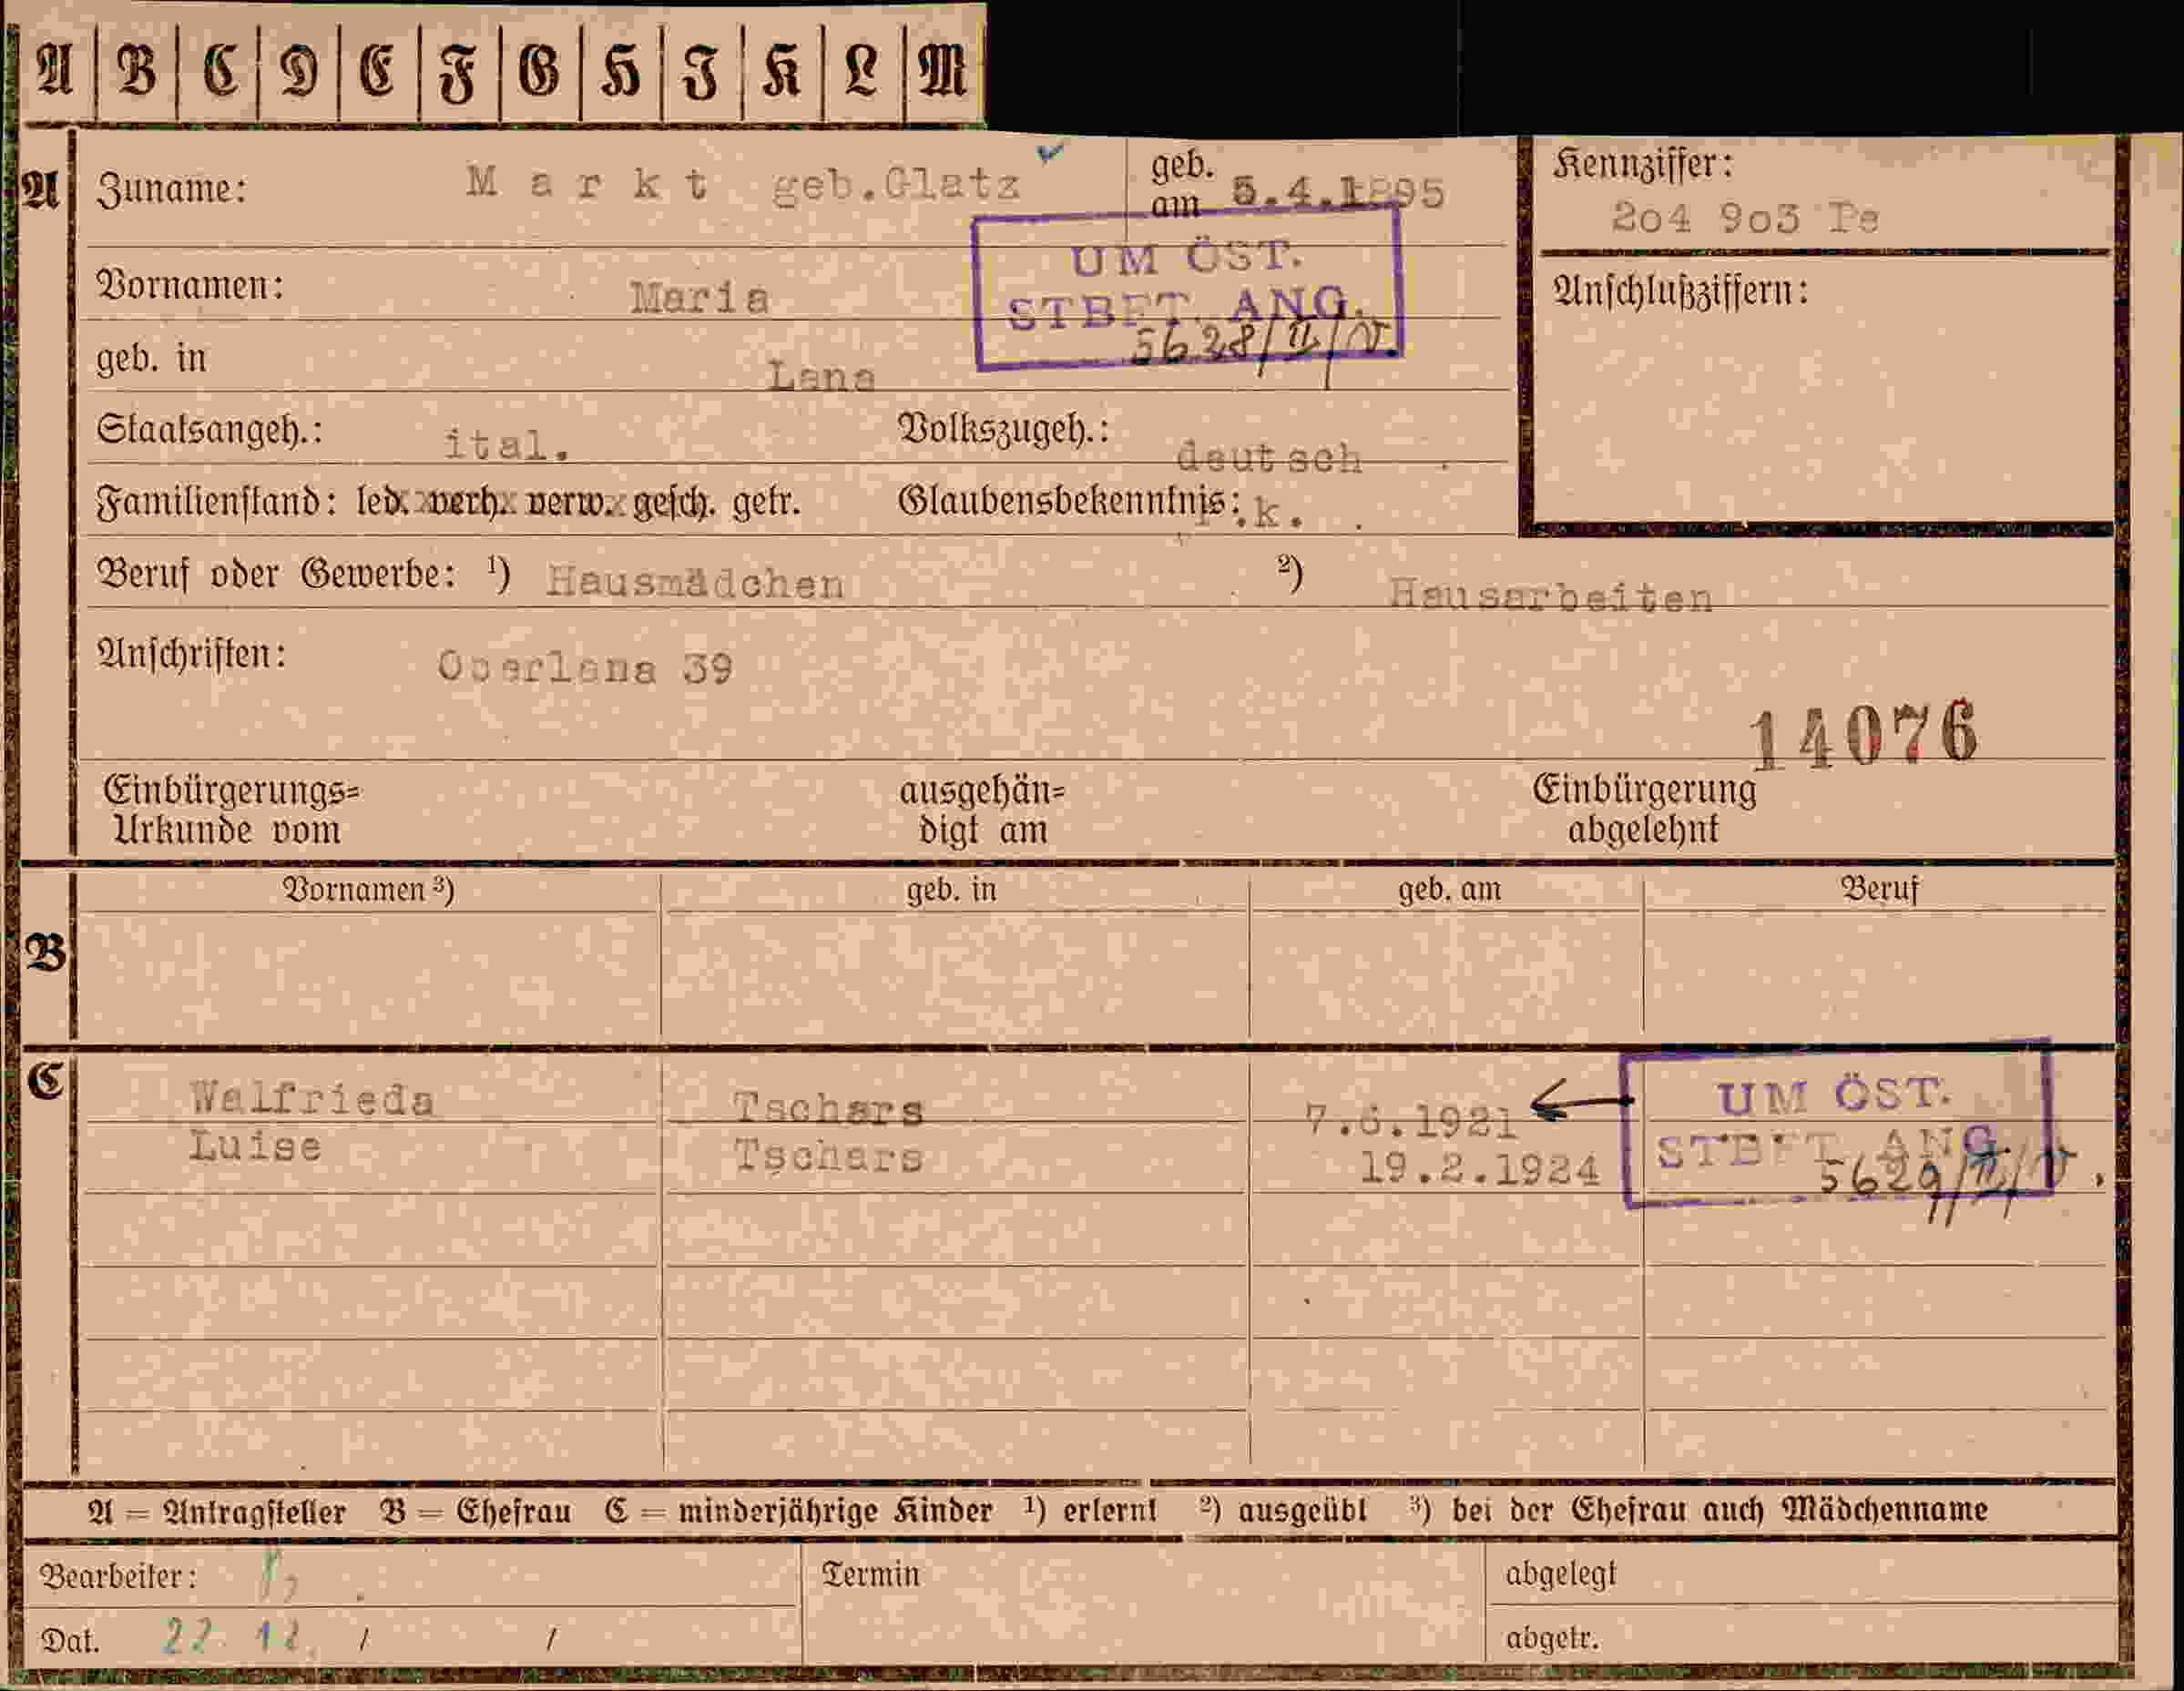 A B C D E F G H I K L M
A Zuname: Markt geb.Glatz geb. am 5.4.1895 Kennziffer: 2o4 9o3 Pe
UM ÖST.
STBFT. ANG.
5628/II/V.
Vornamen: Maria Anschlußziffern:
geb. in Lana
Staatsangeh.: ital. Volkszugeh.: deutsch
Familienstand: led. verh. verw. gesch. getr. Glaubensbekenntnis: .k.
Beruf oder Gewerbe: 1) Hausmädchen 2) Hausarbeiten
Anschriften: Oberlana 39
14076
Einbürgerungs=
Urkunde vom
ausgehän=
digt am
Einbürgerung
abgelehnt
Vornamen 3) geb. in geb. am Beruf
B
C Walfrieda Tschars 7.6.1921
Luise Tschars 19.2.1924
UM ÖST.
STBFT. ANG.
5629/II/V.
A = Antragsteller B = Ehefrau C = minderjährige Kinder 1) erlernt 2) ausgeübt 3) bei der Ehefrau auch Mädchenname
Bearbeiter: Termin abgelegt
Dat. 22. 12. / / abgetr.